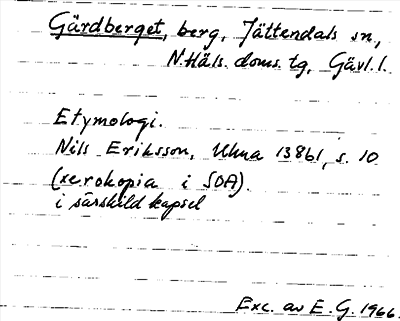 Gärdberget, berg, Jättendals sn,
N. Häls. doms. tg, Gävl. l.
Etymologi.
Nils Eriksson, Uhna 13861, s. 10
(xerokopia i SOA).
i särskild kapsel
Exc. av E. G. 1966.